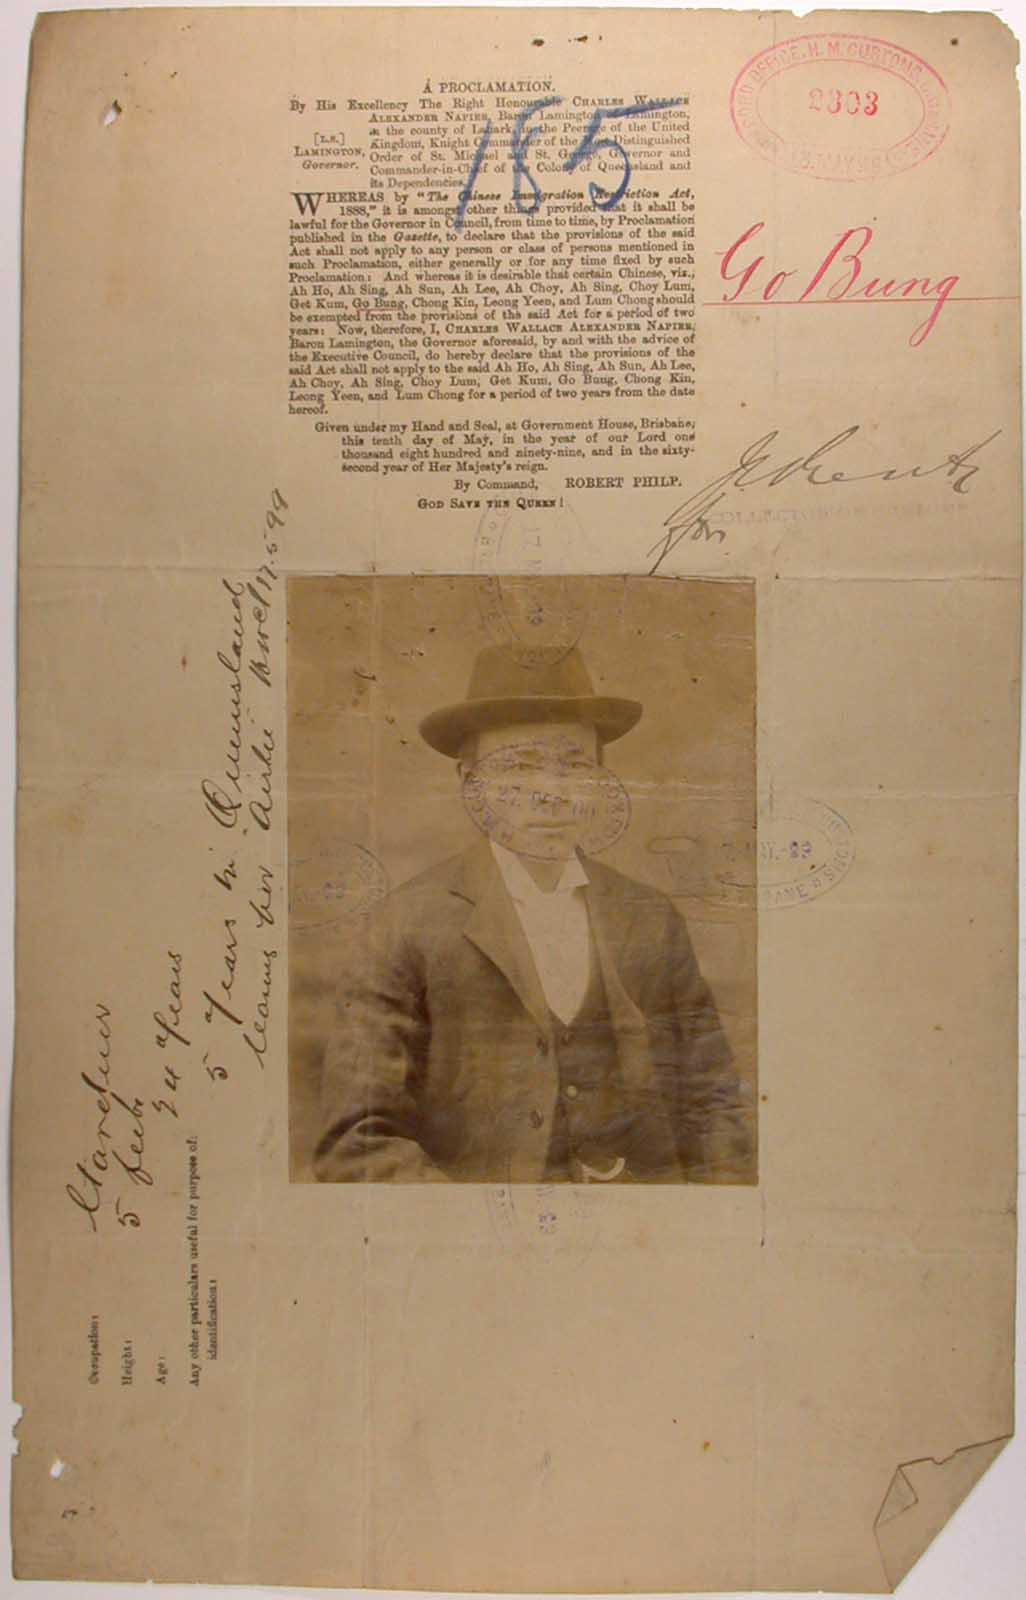 A PROCLAMATION.
By His Excellency The Right Honourable CHARLES WALLACE
ALEXANDER NAPIER, Baron Lamington, of Lamington,
in the county of Lanark, in the Peerage of the United
[L.S.]
LAMINGTON,
Governor.
Kingdom, Knight Commander of the Most Distinguished
Order of St. Michael and St. George, Governor and
Commander-in-Chief of the Colony of Queensland and
its Dependencies.
WHEREAS by "The Chinese Immigration Restriction Act,
1888," it is amongst other things provided that it shall be
lawful for the Governor in Council, from time to time, by Proclamation
published in the Gazette, to declare that the provisions of the said
Act shall not apply to any person or class of persons mentioned in
such Proclamation, either generally or for any time fixed by such
Proclamation: And whereas it is desirable that certain Chinese, viz.,
Ah Ho, Ah Sing, Ah Sun, Ah Lee, Ah Choy, Ah Sing, Choy Lum,
Get Kum, Go Bung, Chong Kin, Leong Yeen, and Lum Chong should
be exempted from the provisions of the said Act for a period of two
years: Now, therefore, I, CHARLES WALLACE ALEXANDER NAPIER,
Baron Lamington, the Governor aforesaid, by and with the advice of
the Executive Council, do hereby declare that the provisions of the
said Act shall not apply to the said Ah Ho, Ah Sing, Ah Sun, Ah Lee,
Ah Choy, Ah Sing, Choy Lum, Get Kum, Go Bung, Chong Kin,
Leong Yeen, and Lum Chong for a period of two years from the date
hereof.
Given under my Hand and Seal, at Government House, Brisbane,
this tenth day of May, in the year of our Lord one
thousand eight hundred and ninety-nine, and in the sixty-
second year of Her Majesty's reign.
By Command, ROBERT PHILP.
GOD SAVE THE QUEEN!
185
OFFICE, H. M. CUSTOMS
2303
Go Bung
for
27. DEC 00
BRISBANE
Occupation: Gardener
Height: 5 feet
Age: 24 years
Any other particulars useful for purpose of
identification:
5 years in Queensland
leaving per Airlie 17.5.99